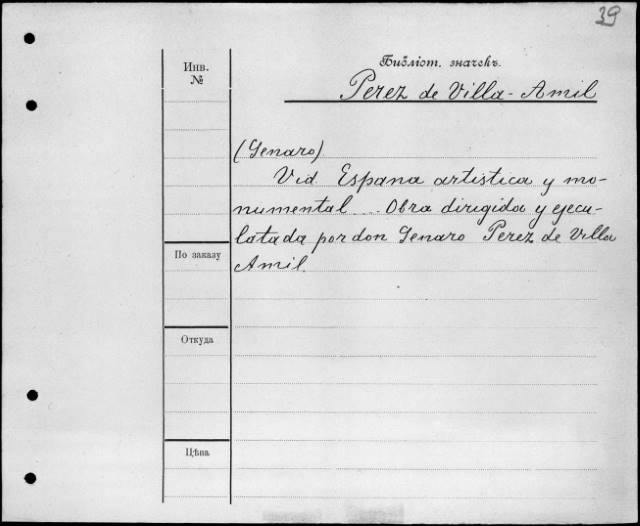 39
Инв.
№
Библіот. значекъ.
Perez de Villa-Amil
(Genaro)
Vid Espana artistica y mo-
numental ... Obra dirigida y ejecu-
latada por don Genaro Perez de Villa
Amil.
По заказу
Откуда
Цѣна